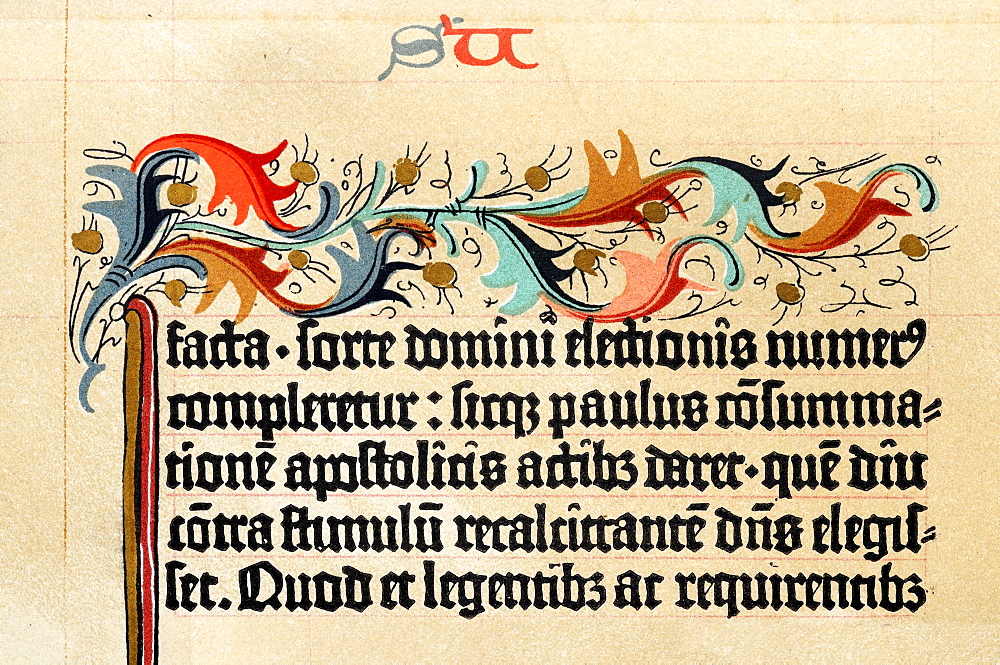 S'a
facta · sorte domini electionis numerꝰ
compleretur : sicqꝫ paulus cōsumma⸗
tionē apostolicis actibꝫ daret · quē diu
cōtra stimulū recalcitrantē dn̄s elegis⸗
set. Quod et legentibꝫ ac requirentibꝫ